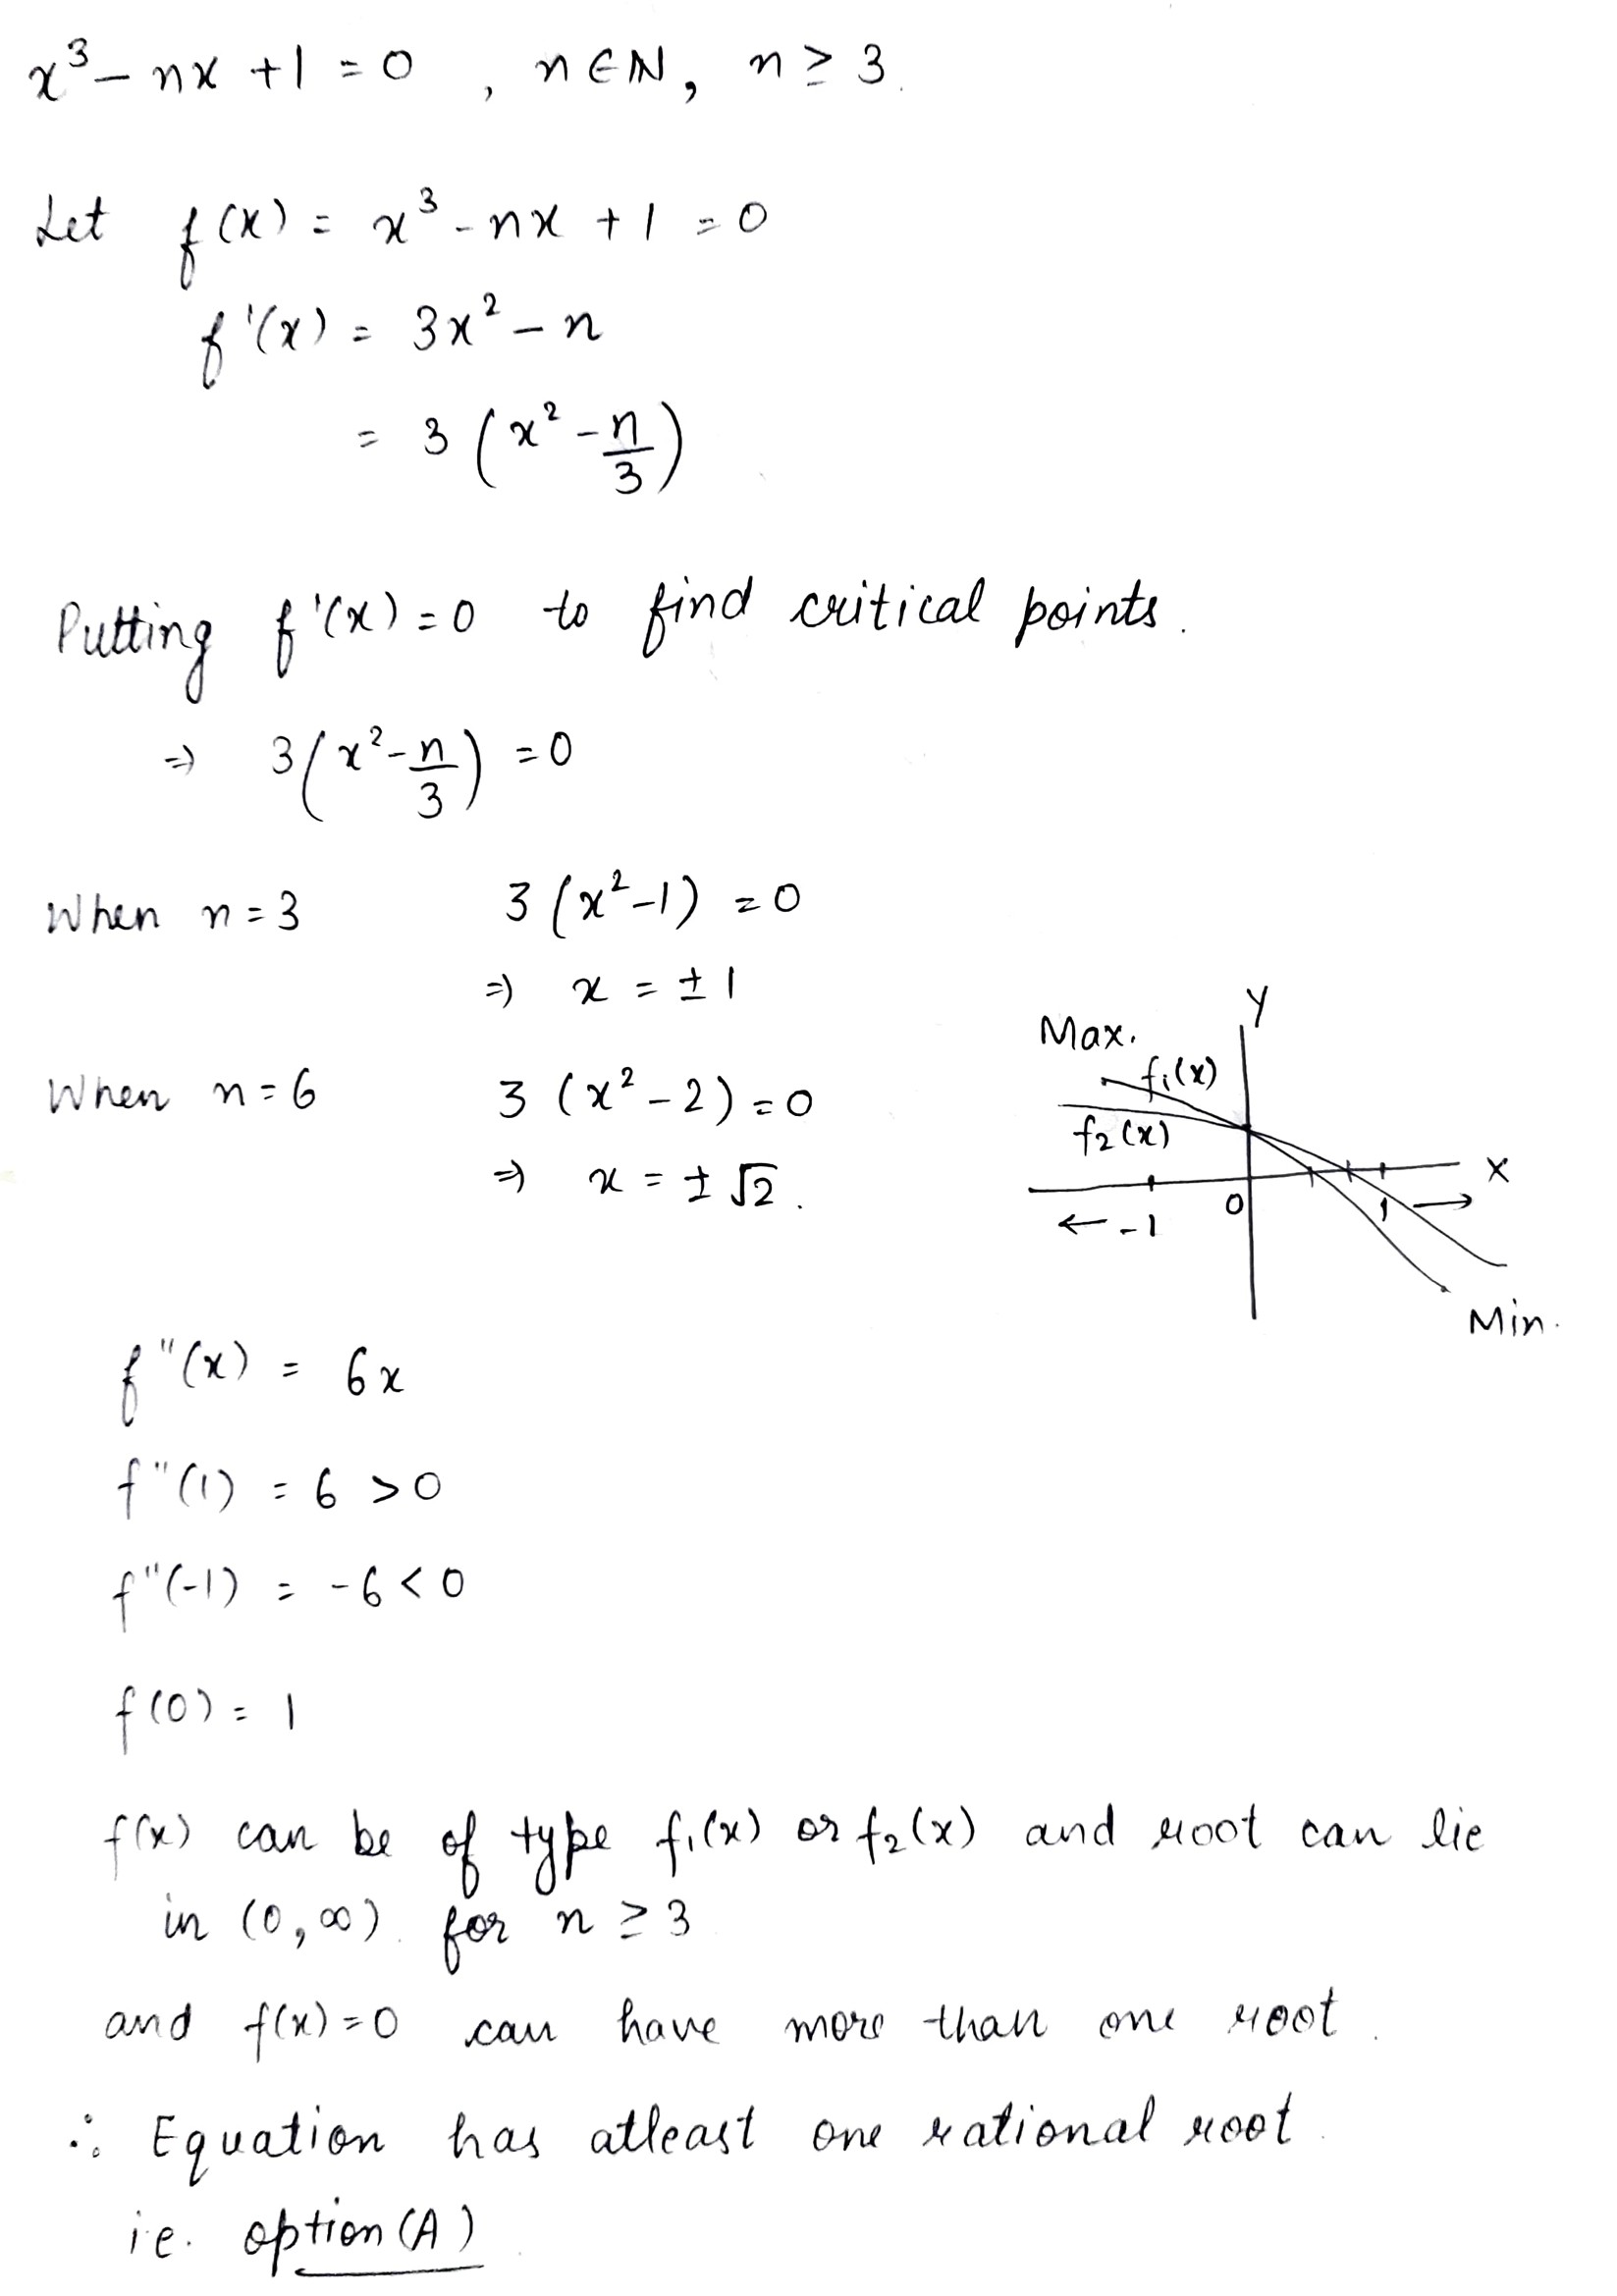 x³ - nx + 1 = 0 , n ∈ N, n ≥ 3.
Let f(x) = x³ - nx + 1 = 0
f'(x) = 3x² - n
= 3 (x² - n/3)
Putting f'(x) = 0 to find critical points.
⇒ 3 (x² - n/3) = 0
When n = 3 3 (x² - 1) = 0
⇒ x = ± 1
When n = 6 3 (x² - 2) = 0
⇒ x = ± √2 .
Y
Max.
f₁(x)
f₂(x)
X
0
← -1
1 →
Min.
f"(x) = 6x
f"(1) = 6 > 0
f"(-1) = -6 < 0
f(0) = 1
f(x) can be of type f₁(x) or f₂(x) and root can lie
in (0, ∞) for n ≥ 3
and f(x) = 0 can have more than one root.
∴ Equation has atleast one rational root.
i.e. option (A)